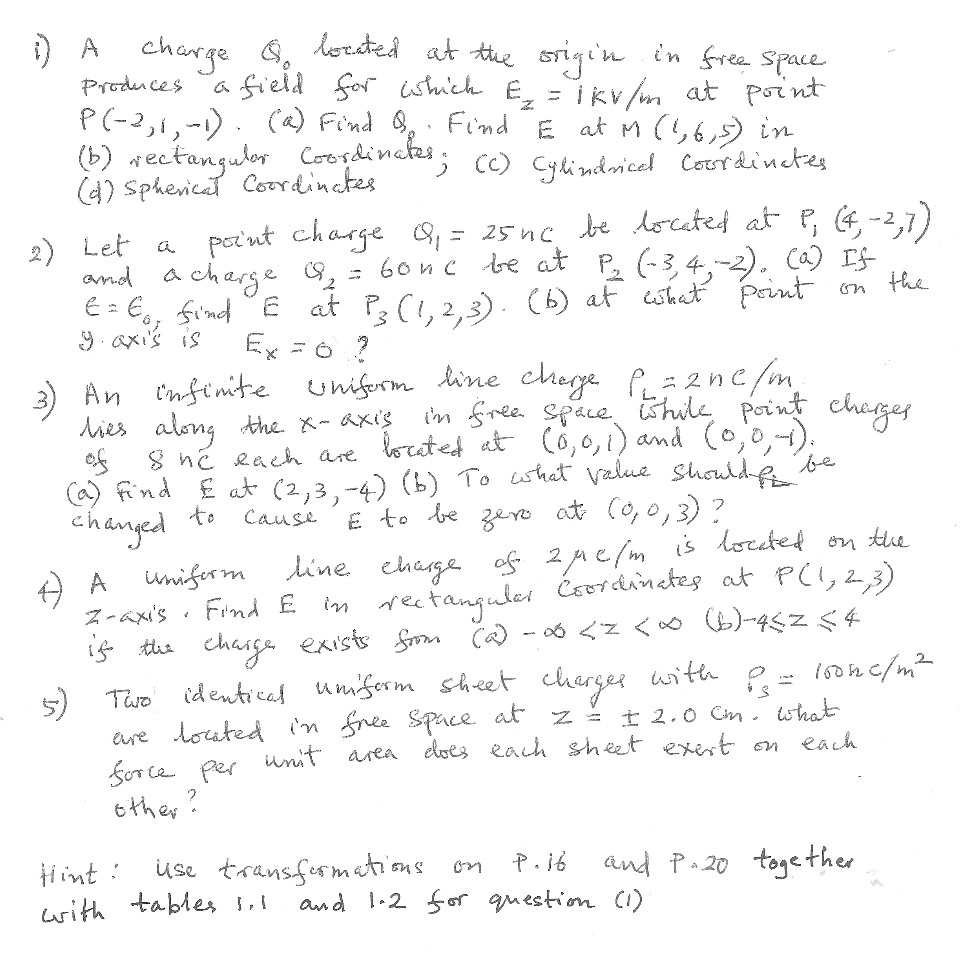 1) A charge Q₀ located at the origin in free space
produces a field for which E_z = 1 kV/m at point
P(-2,1,-1). (a) Find Q₀. Find E at M (1,6,5) in
(b) rectangular Coordinates; (c) Cylindrical Coordinates
(d) Spherical Coordinates
2) Let a point charge Q₁ = 25 nC be located at P₁ (4,-2,7)
and a charge Q₂ = 60 nC be at P₂ (-3,4,-2). (a) If
ϵ = ϵ₀, find E at P₃ (1,2,3). (b) at what point on the
y. axis is E_x = 0 ?
3) An infinite uniform line charge ρ_L = 2 nC/m
lies along the x-axis in free space while point charges
of 8 nC each are located at (0,0,1) and (0,0,-1).
(a) Find E at (2,3,-4) (b) To what value should ρ_L be
changed to cause E to be zero at (0,0,3) ?
4) A uniform line charge of 2 μC/m is located on the
z-axis. Find E in rectangular Coordinates at P(1,2,3)
if the charge exists from (a) -∞ < z < ∞ (b) -4 ≤ z ≤ 4
5) Two identical uniform sheet charges with ρ_s = 100 nC/m²
are located in free space at z = ± 2.0 cm. what
force per unit area does each sheet exert on each
other ?
Hint : use transformations on P.16 and P.20 together
with tables 1.1 and 1.2 for question (1)